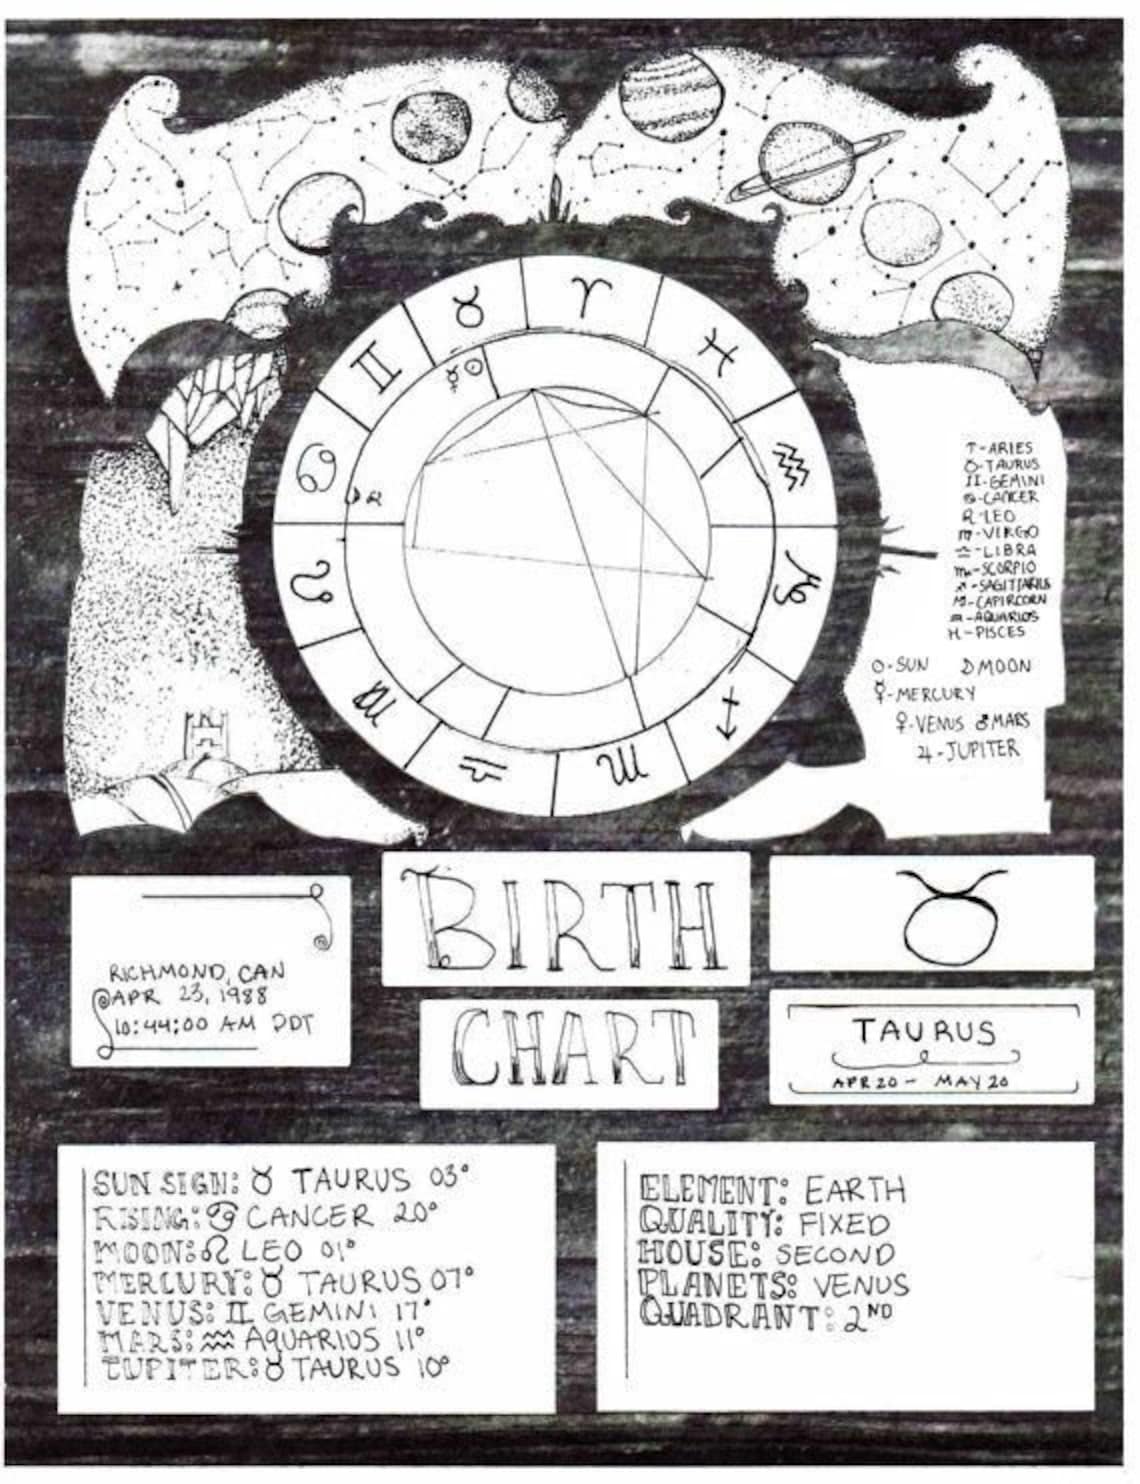 ♈ ♉ ♊ ♋ ♌ ♍ ♎ ♏ ♐ ♑ ♒ ♓
☿ ☉
☽ ♌
♈-ARIES
♉-TAURUS
♊-GEMINI
♋-CANCER
♌-LEO
♍-VIRGO
♎-LIBRA
♏-SCORPIO
♐-SAGITTARIUS
♑-CAPIRCORN
♒-AQUARIOS
♓-PISCES
O-SUN ☽MOON
☿-MERCURY
♀-VENUS ♂MARS
♃-JUPITER
BIRTH
CHART
RICHMOND, CAN
APR 23, 1988
10:44:00 AM PDT
♉
TAURUS
APR 20 - MAY 20
SUN SIGN: ♉ TAURUS 03°
RISING: ♋ CANCER 20°
MOON: ♌ LEO 01°
MERCURY: ♉ TAURUS 07°
VENUS: ♊ GEMINI 17°
MARS: ♒ AQUARIUS 11°
JUPITER: ♉ TAURUS 10°
ELEMENT: EARTH
QUALITY: FIXED
HOUSE: SECOND
PLANETS: VENUS
QUADRANT: 2ND